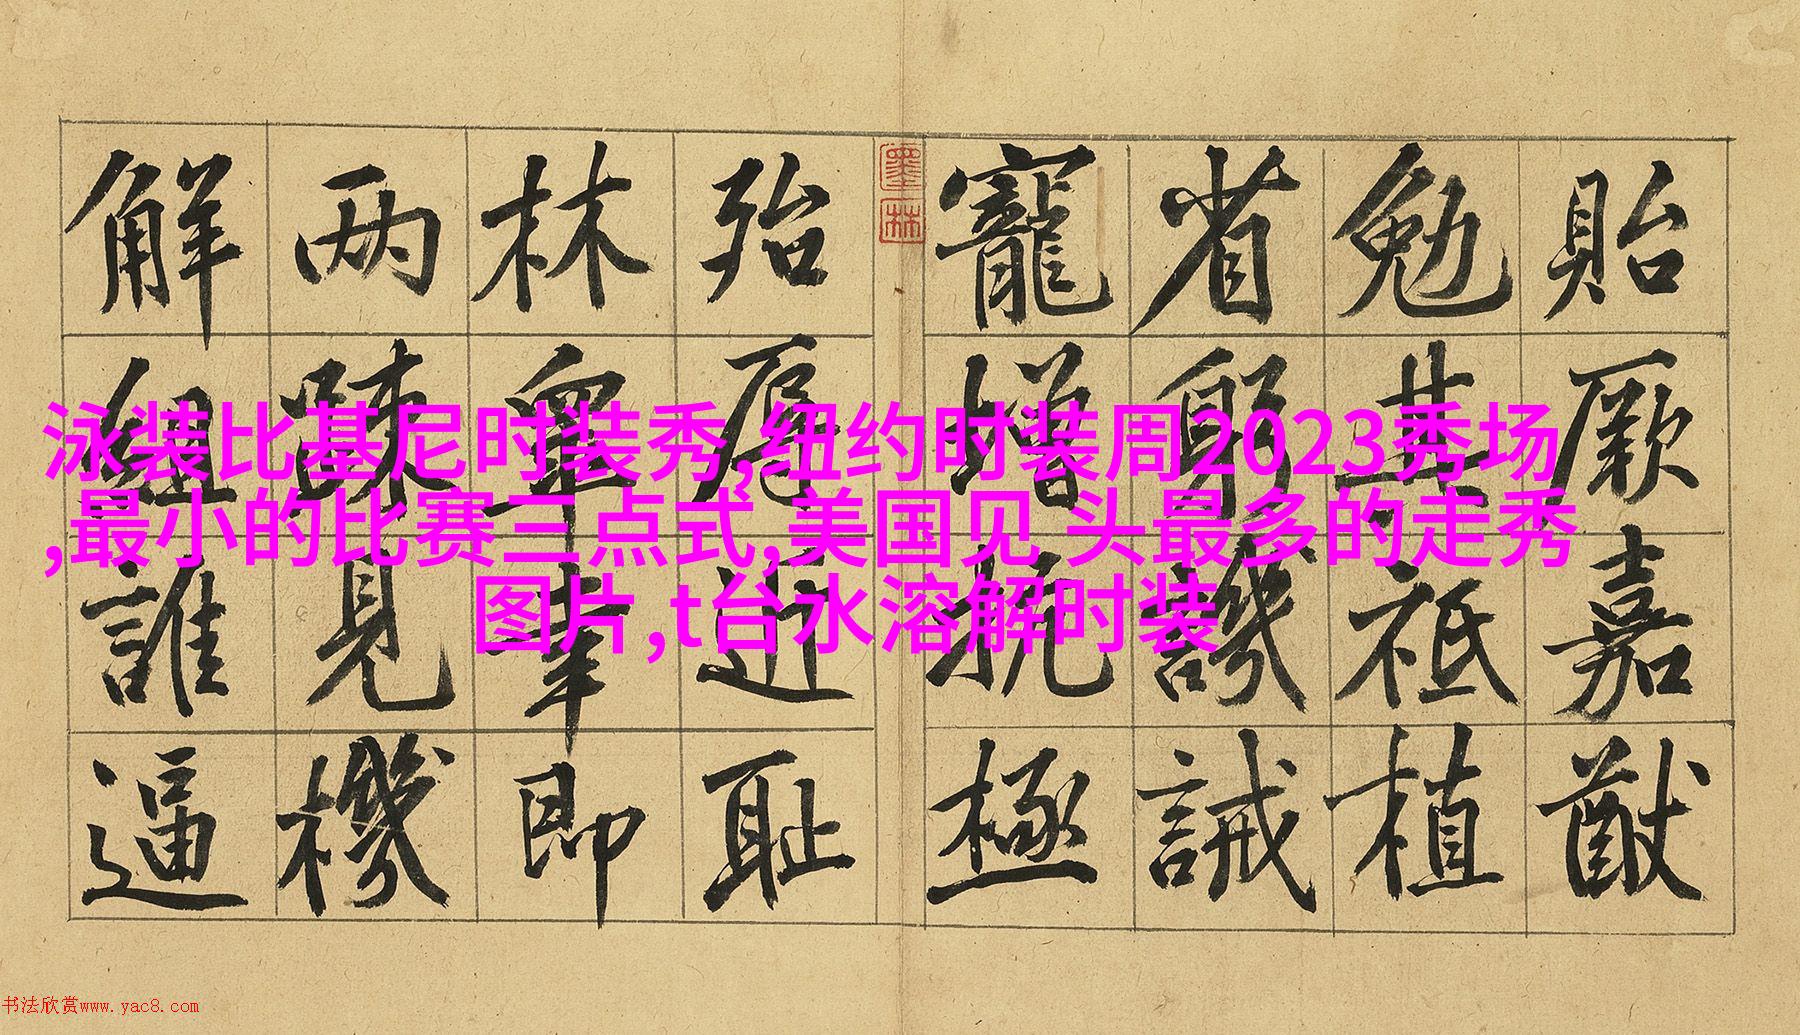 貽厥嘉猷
勉其祗植
省躬譏誡
寵增抗極
墨林
殆辱近耻
林皐幸即
两踈見機
解組誰逼
泳装比基尼时装秀,纽约时装周2023秀场
,最小的比赛三点式,美国见 头最多的走秀
图片,t台水溶解时装
书法欣赏www.yac8.com